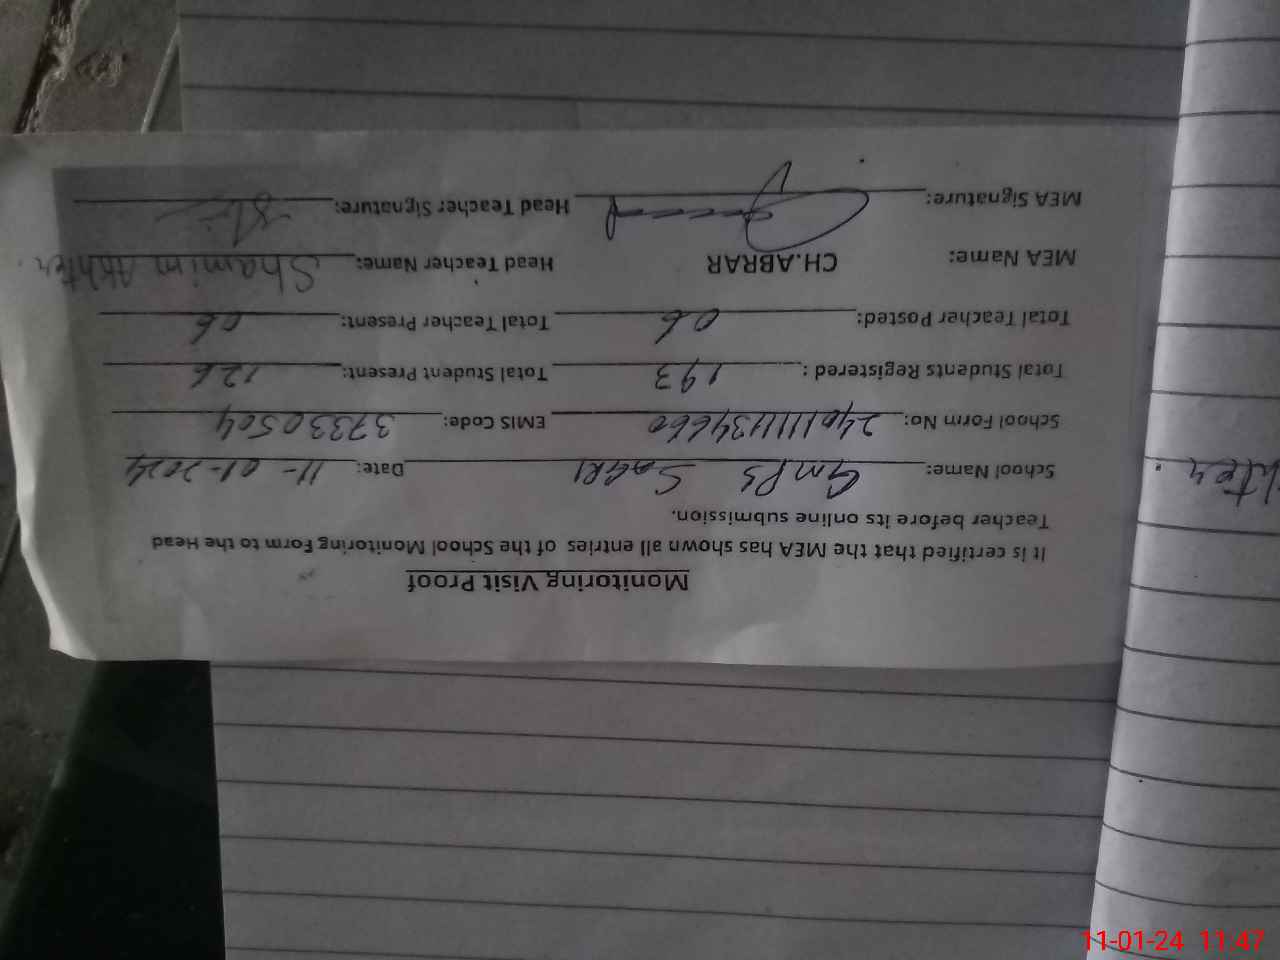 Monitoring Visit Proof
It is certified that the MEA has shown all entries of the School Monitoring Form to the Head
Teacher before its online submission.
School Name: GMPS SAGRI Date: 11-01-2024
School Form No: EMIS Code: 37330504
Total Students Registered : 193 Total Student Present: 126
Total Teacher Posted: 06 Total Teacher Present: 06
MEA Name: CH.ABRAR Head Teacher Name: Shamim Akhter.
MEA Signature: Head Teacher Signature:
11-01-24 11:47